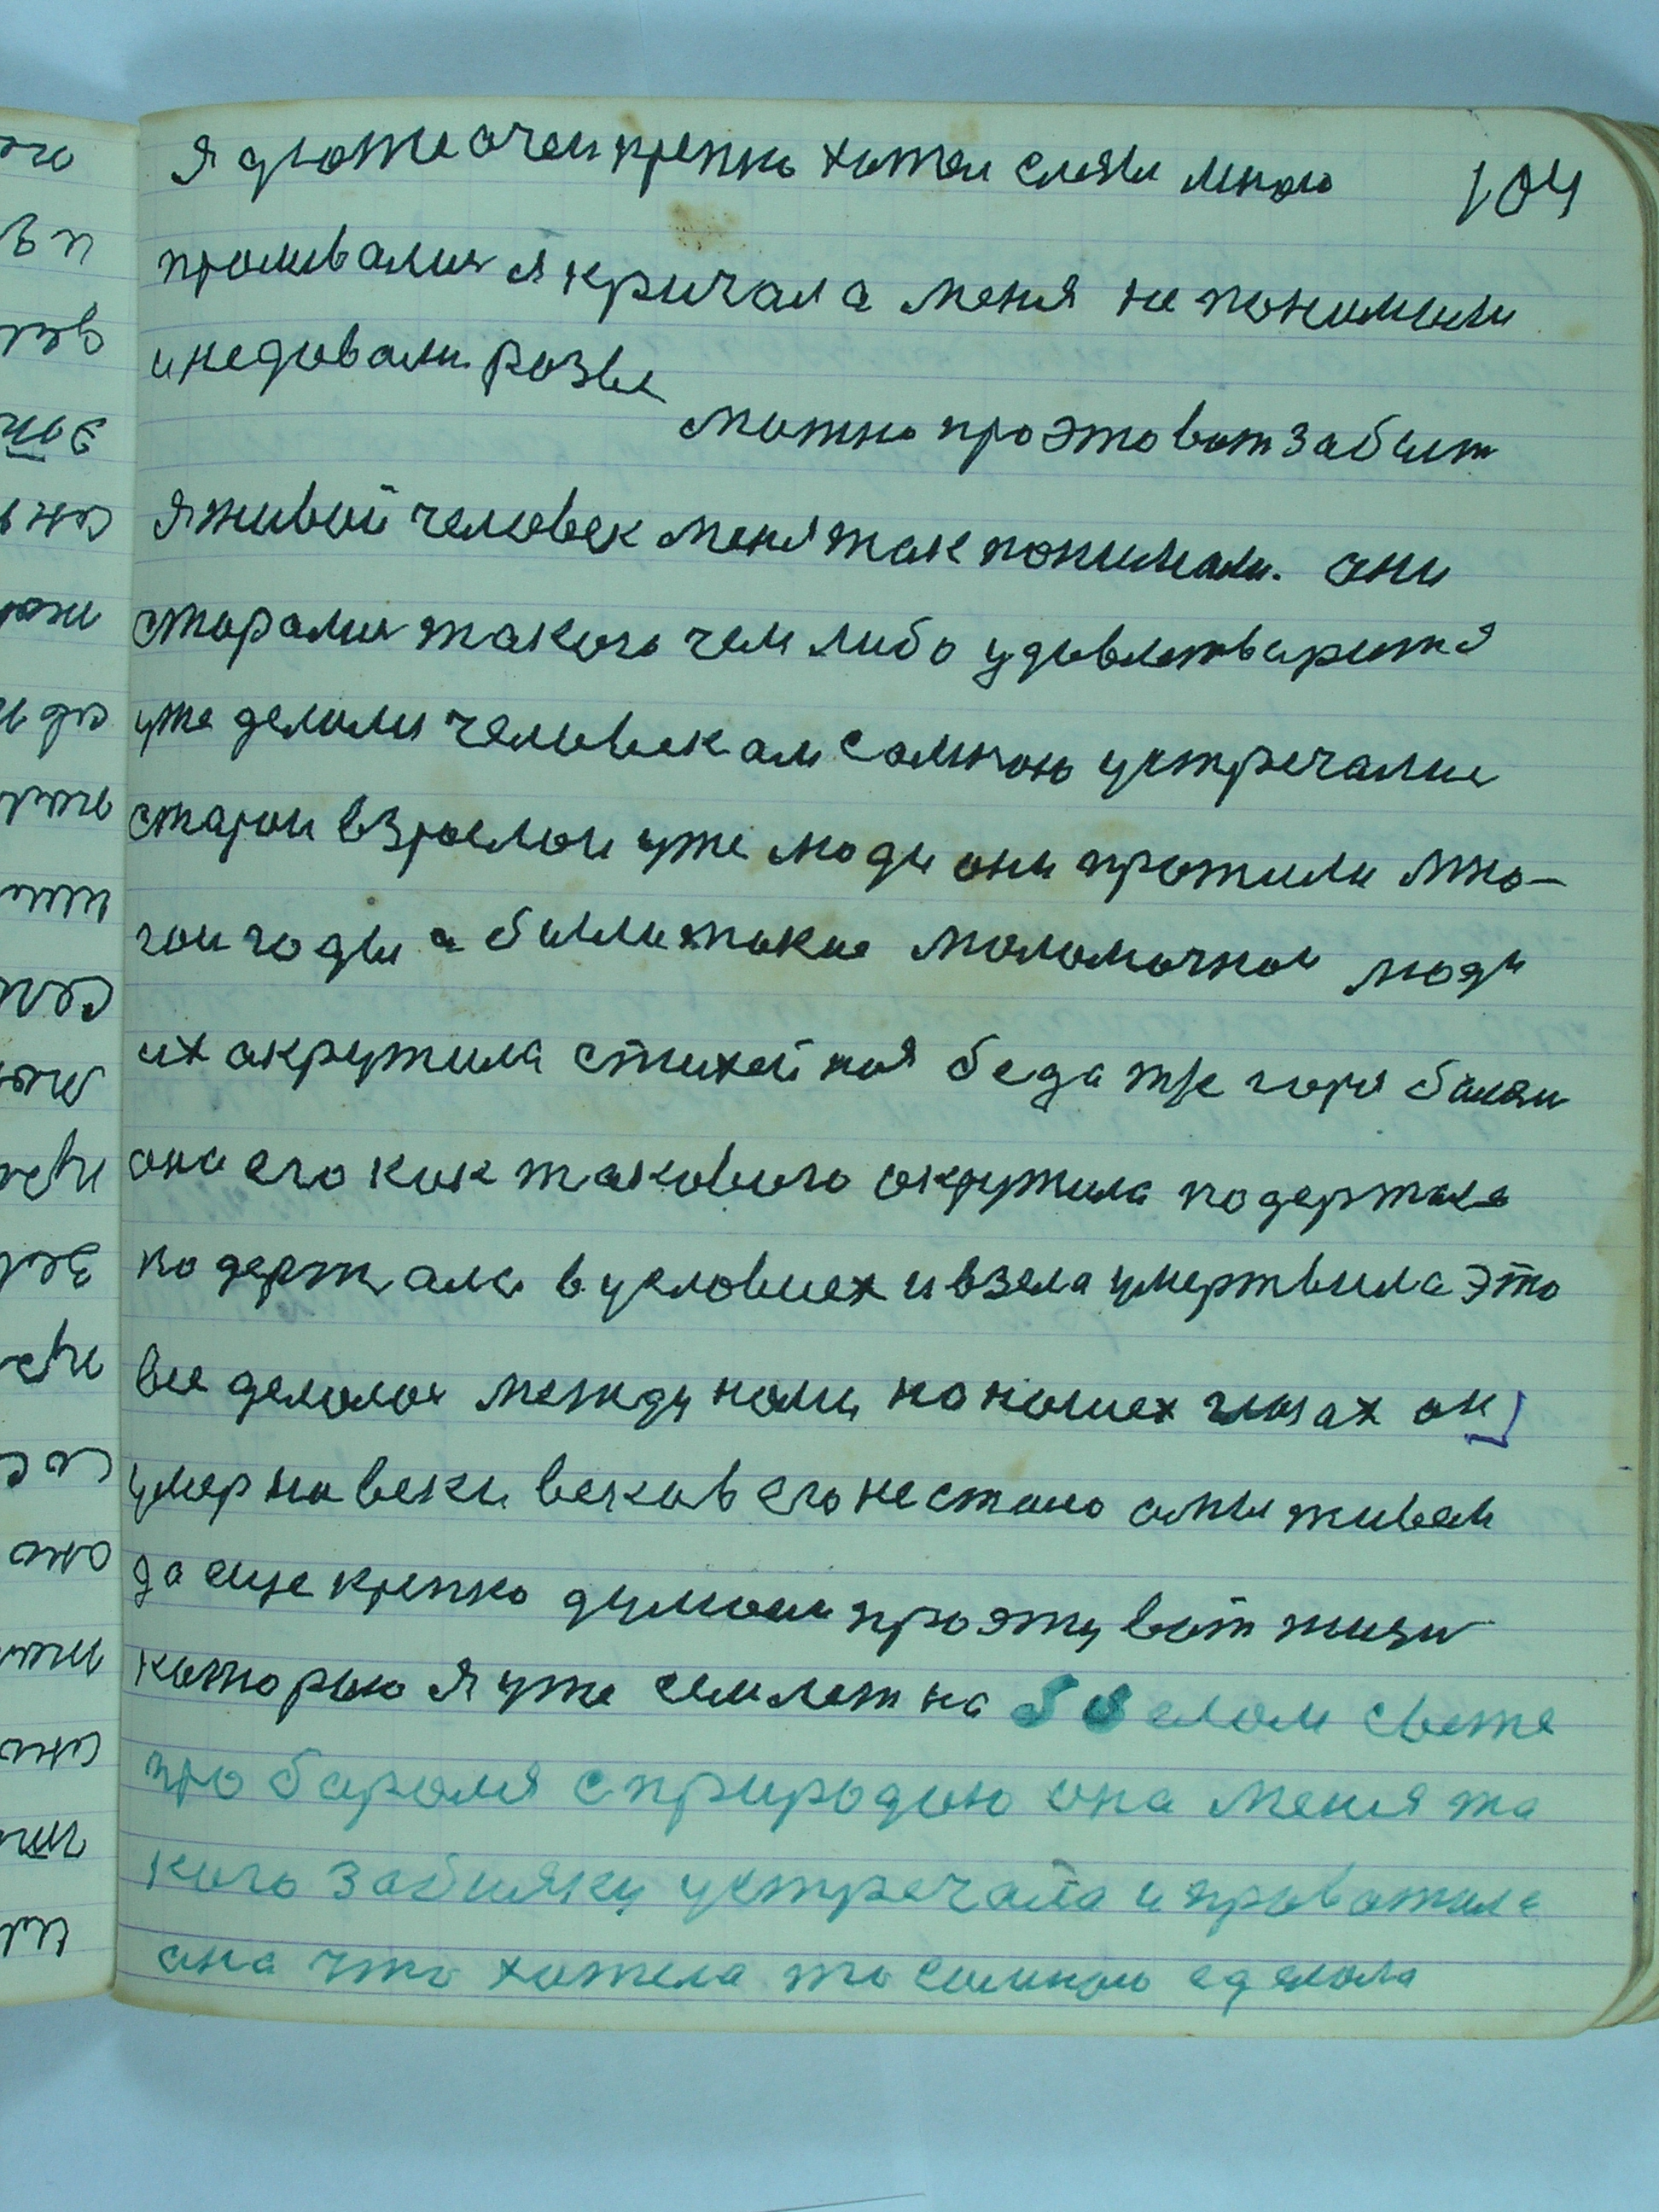 104
я дюже очен крепко хотел слезы мною
проливалис я кричал а меня не понимали
и недовали розве
можно про это вот забыт
я живой человек меня так понимали. они
сторалис такого чем либо удовлетворитя
уже делалис человеком самною устречалис
старои взрослои уже люди они прожили мно-
гои годы а были такие маломочнои люди
их окружила стихейная беда тже горя болезн
она его как таковога окружила подержала
подержала в условиех и взела умертвила это
все делолос между нами на нашех глазах он
умер на веки веков его нестало а мы живем
да еще крепко думаем про эту вот жизн
которыю я уже сем лет на белом свете
про боролся с природою она меня та
кого забияку устречала и провожала
она что хотела то самною сделала